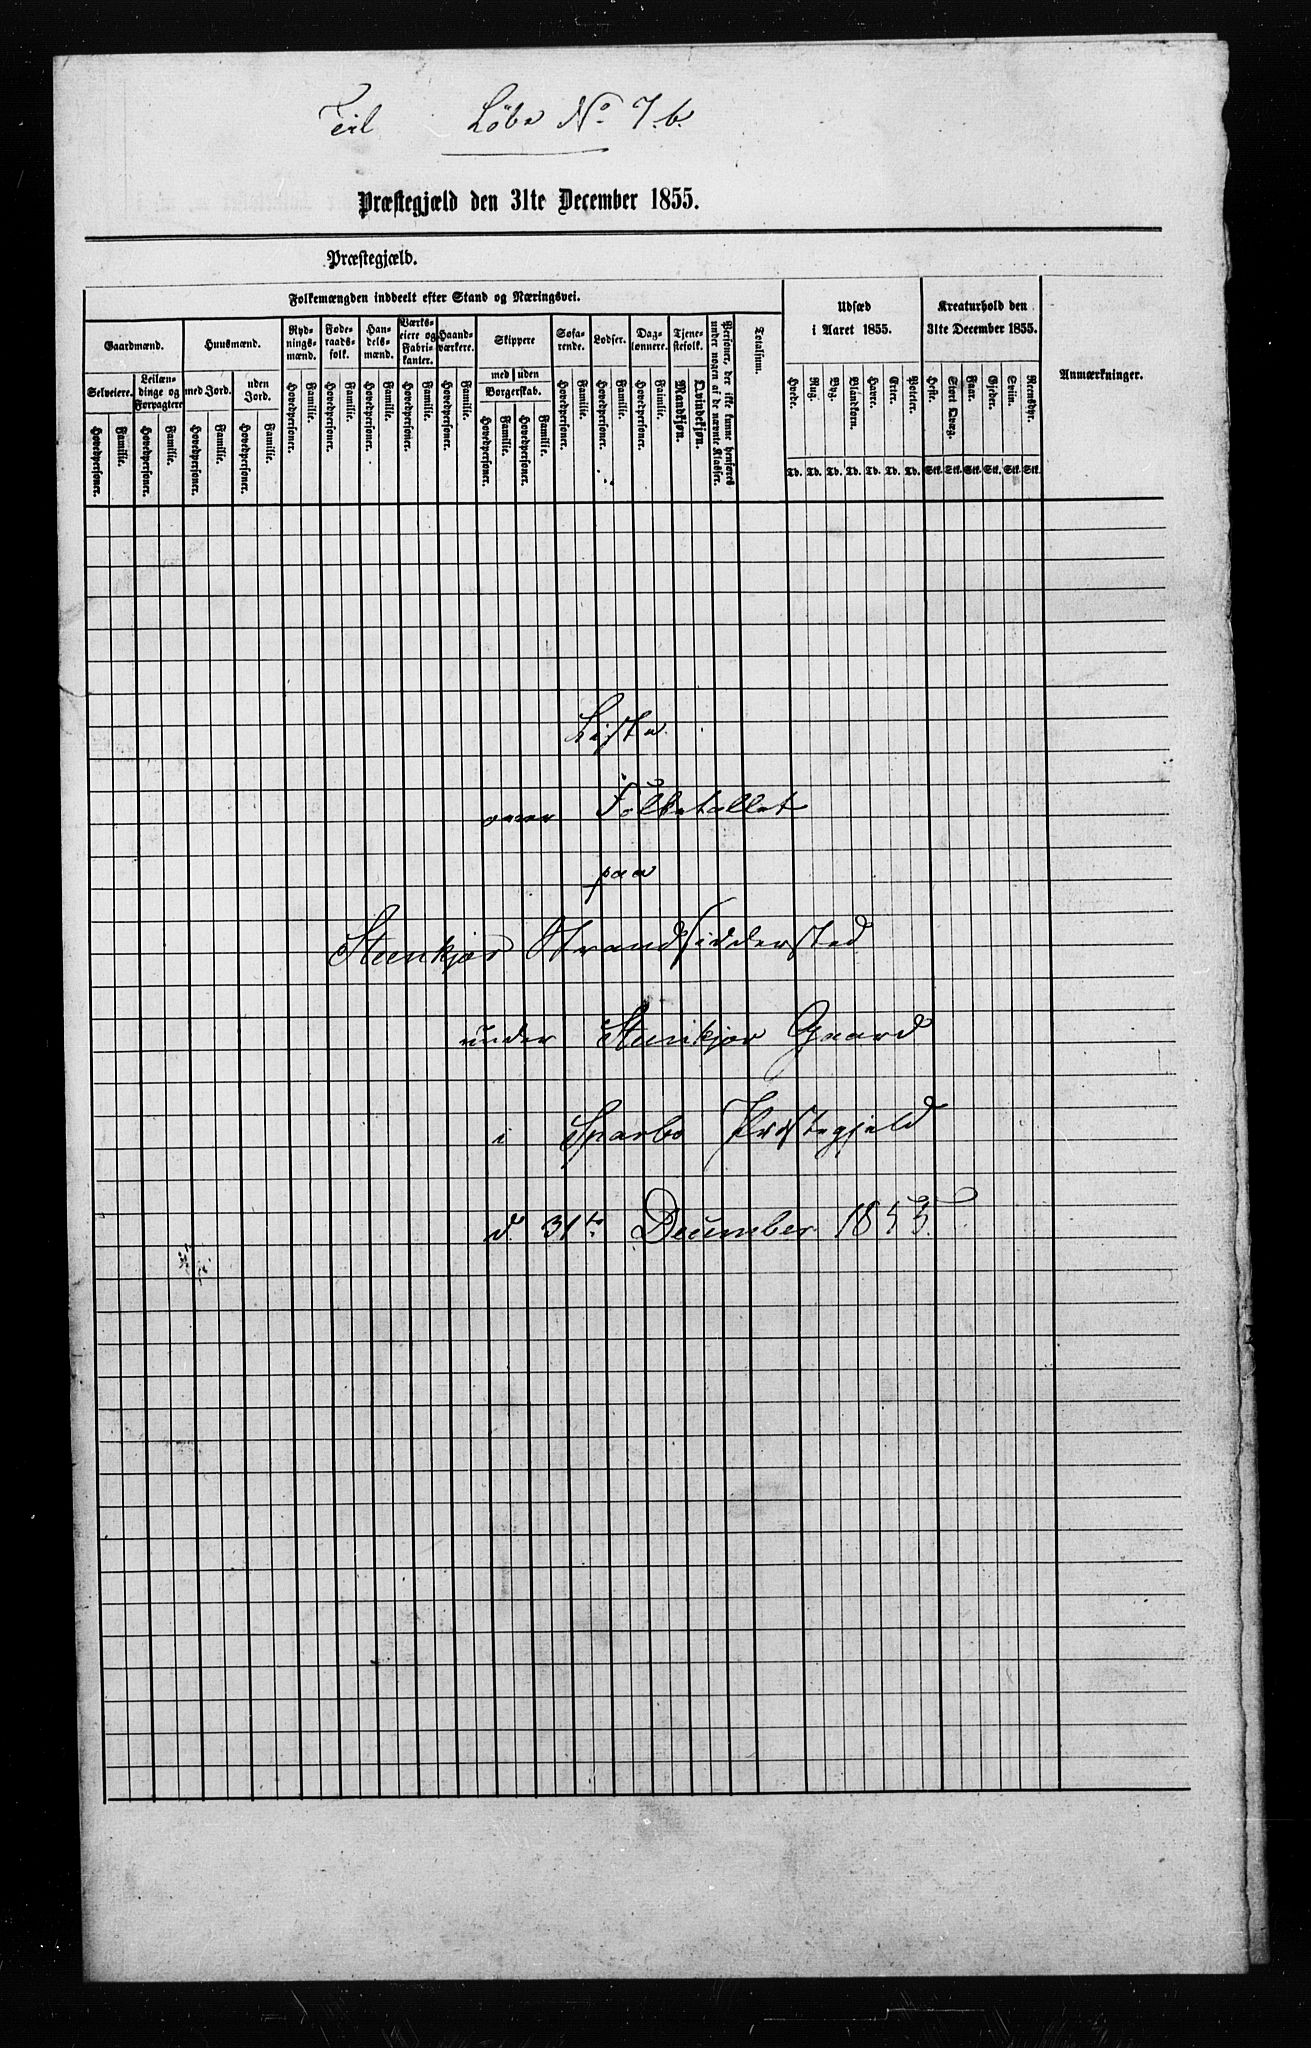 Til Løbe No 7.b.
Præstegjæld den 31te December 1855.
Præstegjæld.
Folkemængden inddeelt efter Stand og Næringsvei.
Udsæd i Aaret 1855.
Kreaturhold den 31te December 1855.
Anmærkninger.
Gaardmænd.
Huusmænd.
Rydningsmænd.
Føderaadsfolk.
Handelsmænd.
Værkseiere og Fabrikanter.
Haandværkere.
Skippere
Søfarende.
Lodser.
Daglønnere.
Tjenestefolk.
Personer, der ikke kunne henføres under nogen af de nævnte Klasser.
Totalsum.
Selveiere.
Leilændinge og Forpagtere
med Jord.
uden Jord.
med uden
Borgerskab.
Mandkjøn.
Qvindekjøn.
Hovedpersoner. Familie. Hovedpersoner. Familie. Hovedpersoner. Familie. Hovedpersoner. Familie. Hovedpersoner. Familie. Hovedpersoner. Familie. Hovedpersoner. Familie. Hovedpersoner. Familie. Hovedpersoner. Familie. Hovedpersoner. Familie. Hovedpersoner. Familie. Hovedpersoner. Familie. Hovedpersoner. Familie. Hovedpersoner. Familie.
Hvede. Rug. Byg. Blandkorn. Havre. Erter. Poteter. Heste. Stort Qvæg. Faar. Gjeder. Sviin. Reensdyr.
Td. Td. Td. Td. Td. Td. Td. Stk. Stk. Stk. Stk. Stk. Stk.
Liste
over Folketallet
paa
Steenkjær Strandsiddersted
under Steenkjær Gaard
i Sparbo Præstegjeld
d. 31te December 1855.